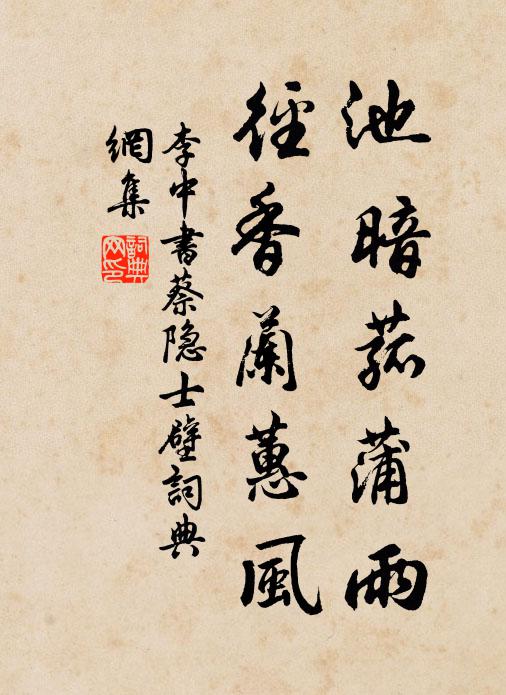 池暗菰蒲雨
徑香蘭蕙風
李中書蔡隐士壁詞典
網集
詞典
网印